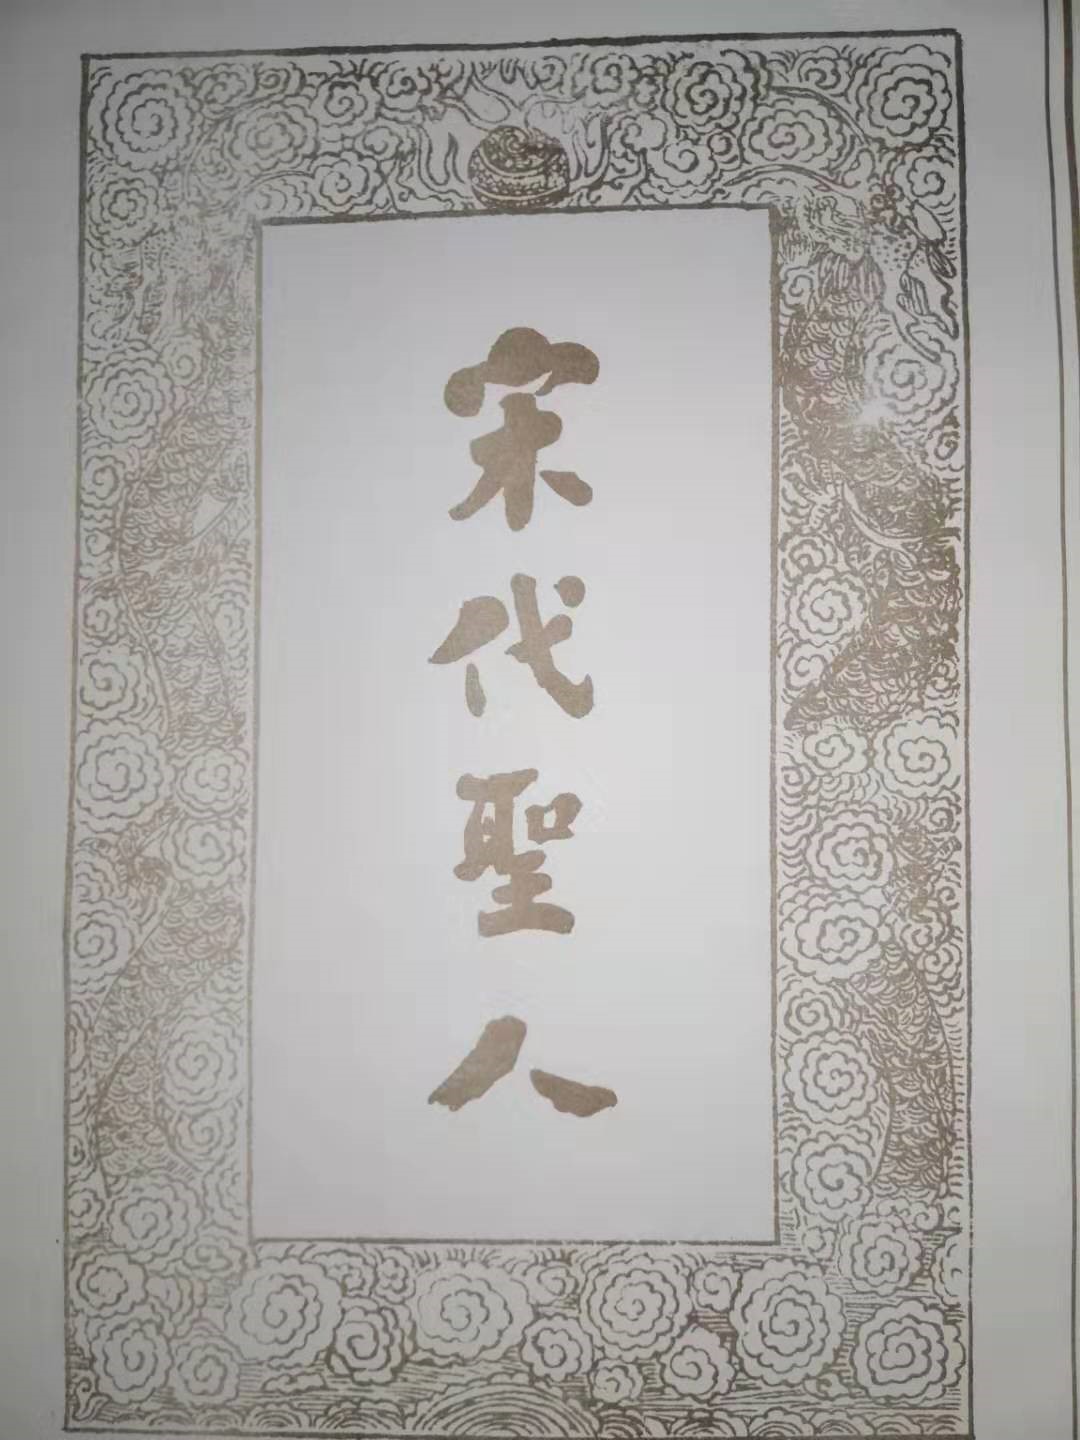 宋代聖人